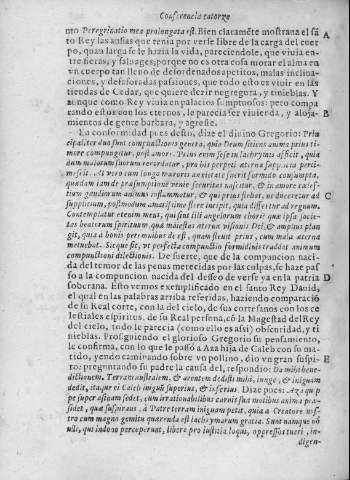 Conferencia catorze
mto Peregrinatio mea prolongata est. Bien claramẽte mostraua el sã
to Rey las ansias que tenia por verse libre de la carga del cuer
po, quan larga se le hazia la vida, pareciendole, que viuia en-
tre fieras, y saluages; porque no es otra cosa morar el alma en
vn cuerpo tan lleno de desordenados apetitos, malas inclina-
ciones, y desaforadas passiones, que todo esto es viuir en las
tiendas de Cedar, que quiere dezir negregura, y tinieblas. Y
aunque como Rey viuia en palacios sumptuosos: pero compa
rando estos con los eternos, le parecia ser viuienda, y aloja-
mientos de gente barbara, y agreste.
En conformidad pues desto, dize el diuino Gregorio: Prin
cipaliter duo sunt compunctionis genera, quia Deum sitiens anima prius ti-
more compungitur, post amore. Prius enim sese in lachrymis afficit, quia
dum malorum suorum recordatur, pro his perpeti aterna supplicia perti-
mescit. At vero cum longa mœroris anxietate fuerit formido consumpta,
quædam iam de præsumptione veniæ securitas nascitur, & in amore cœles-
tium gaudiorum animus inflammatur, & qui prius flebat, ne duceretur ad
supplicium, postmodum amarissimè flere incipit, quia differtur ad regnum.
Contemplatur etenim mens, qui sint illi angelorum chori: quæ ipsa socie-
tas beatorum spirituum, quæ maiestas æternæ visionis Dei, & amplius plan
git, quia à bonis perennibus deest, quam fleuit prius, cum mala æterna
metuebat. Sicque fit, vt perfecta compunctio formidinis traddat animum
compunctioni dilectionis. De suerte, que de la compuncion naci-
da del temor de las penas merecidas por las culpas, se haze pas
so a la compuncion nacida del desseo de verse ya en la patria
soberana. Esto vemos exemplificado en el santo Rey Dauid,
el qual en las palabras arriba referidas, haziendo comparaciõ
de su Real corte, con la del cielo, de sus cortesanos con los ce
lestiales espiritus, de su Real persona, cõ la Magestad del Rey
del cielo, todo le parecia (como ello es assi) obscuridad, y ti
nieblas. Prosiguiendo el glorioso Gregorio su pensamiento,
le confirma, con lo que le passò a Axa hija de Caleb con su ma
rido, yendo caminando sobre vn pollino, dio vn gran suspi-
ro: preguntando su padre la causa del, respondio: Da mihi bene-
dictionem. Terram australem, & arentem dedisti mihi, iunge, & irriguam
dedit, itaque ei Caleb irriguũ superius, & inferius. Dize pues: Axa quip
pe super asinam sedet, cum irrationabilibus carnis suæ motibus anima præ-
sidet, quæ suspirans à Patre terram irriguam petit, quia à Creatore nos-
tro cum magno gemitu quærenda est lachrymarum gratia. Sunt namque nõ
nulli, qui in dono perceperunt, libere pro iustitia loqui, oppressos tueri, in-
digen-
A
B
C
D
E